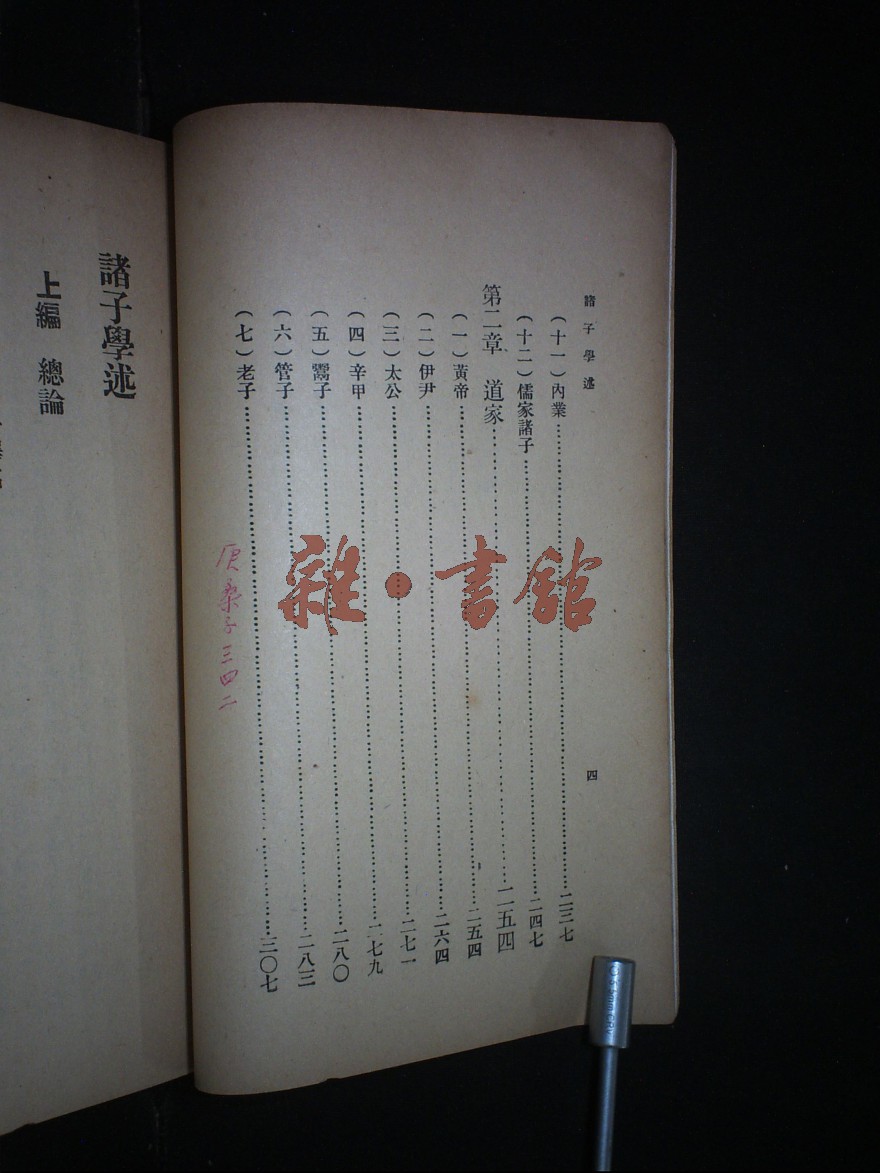 諸子學述
四
(十一)內業……二三七
(十二)儒家諸子……二四七
第二章 道家……二五四
(一)黃帝……二五四
(二)伊尹……二六四
(三)太公……二七一
(四)辛甲……二七九
(五)鬻子……二八〇
(六)管子……二八三
(七)老子……三〇七
庚桑子三四二
雜·書館
諸子學述
上編 總論